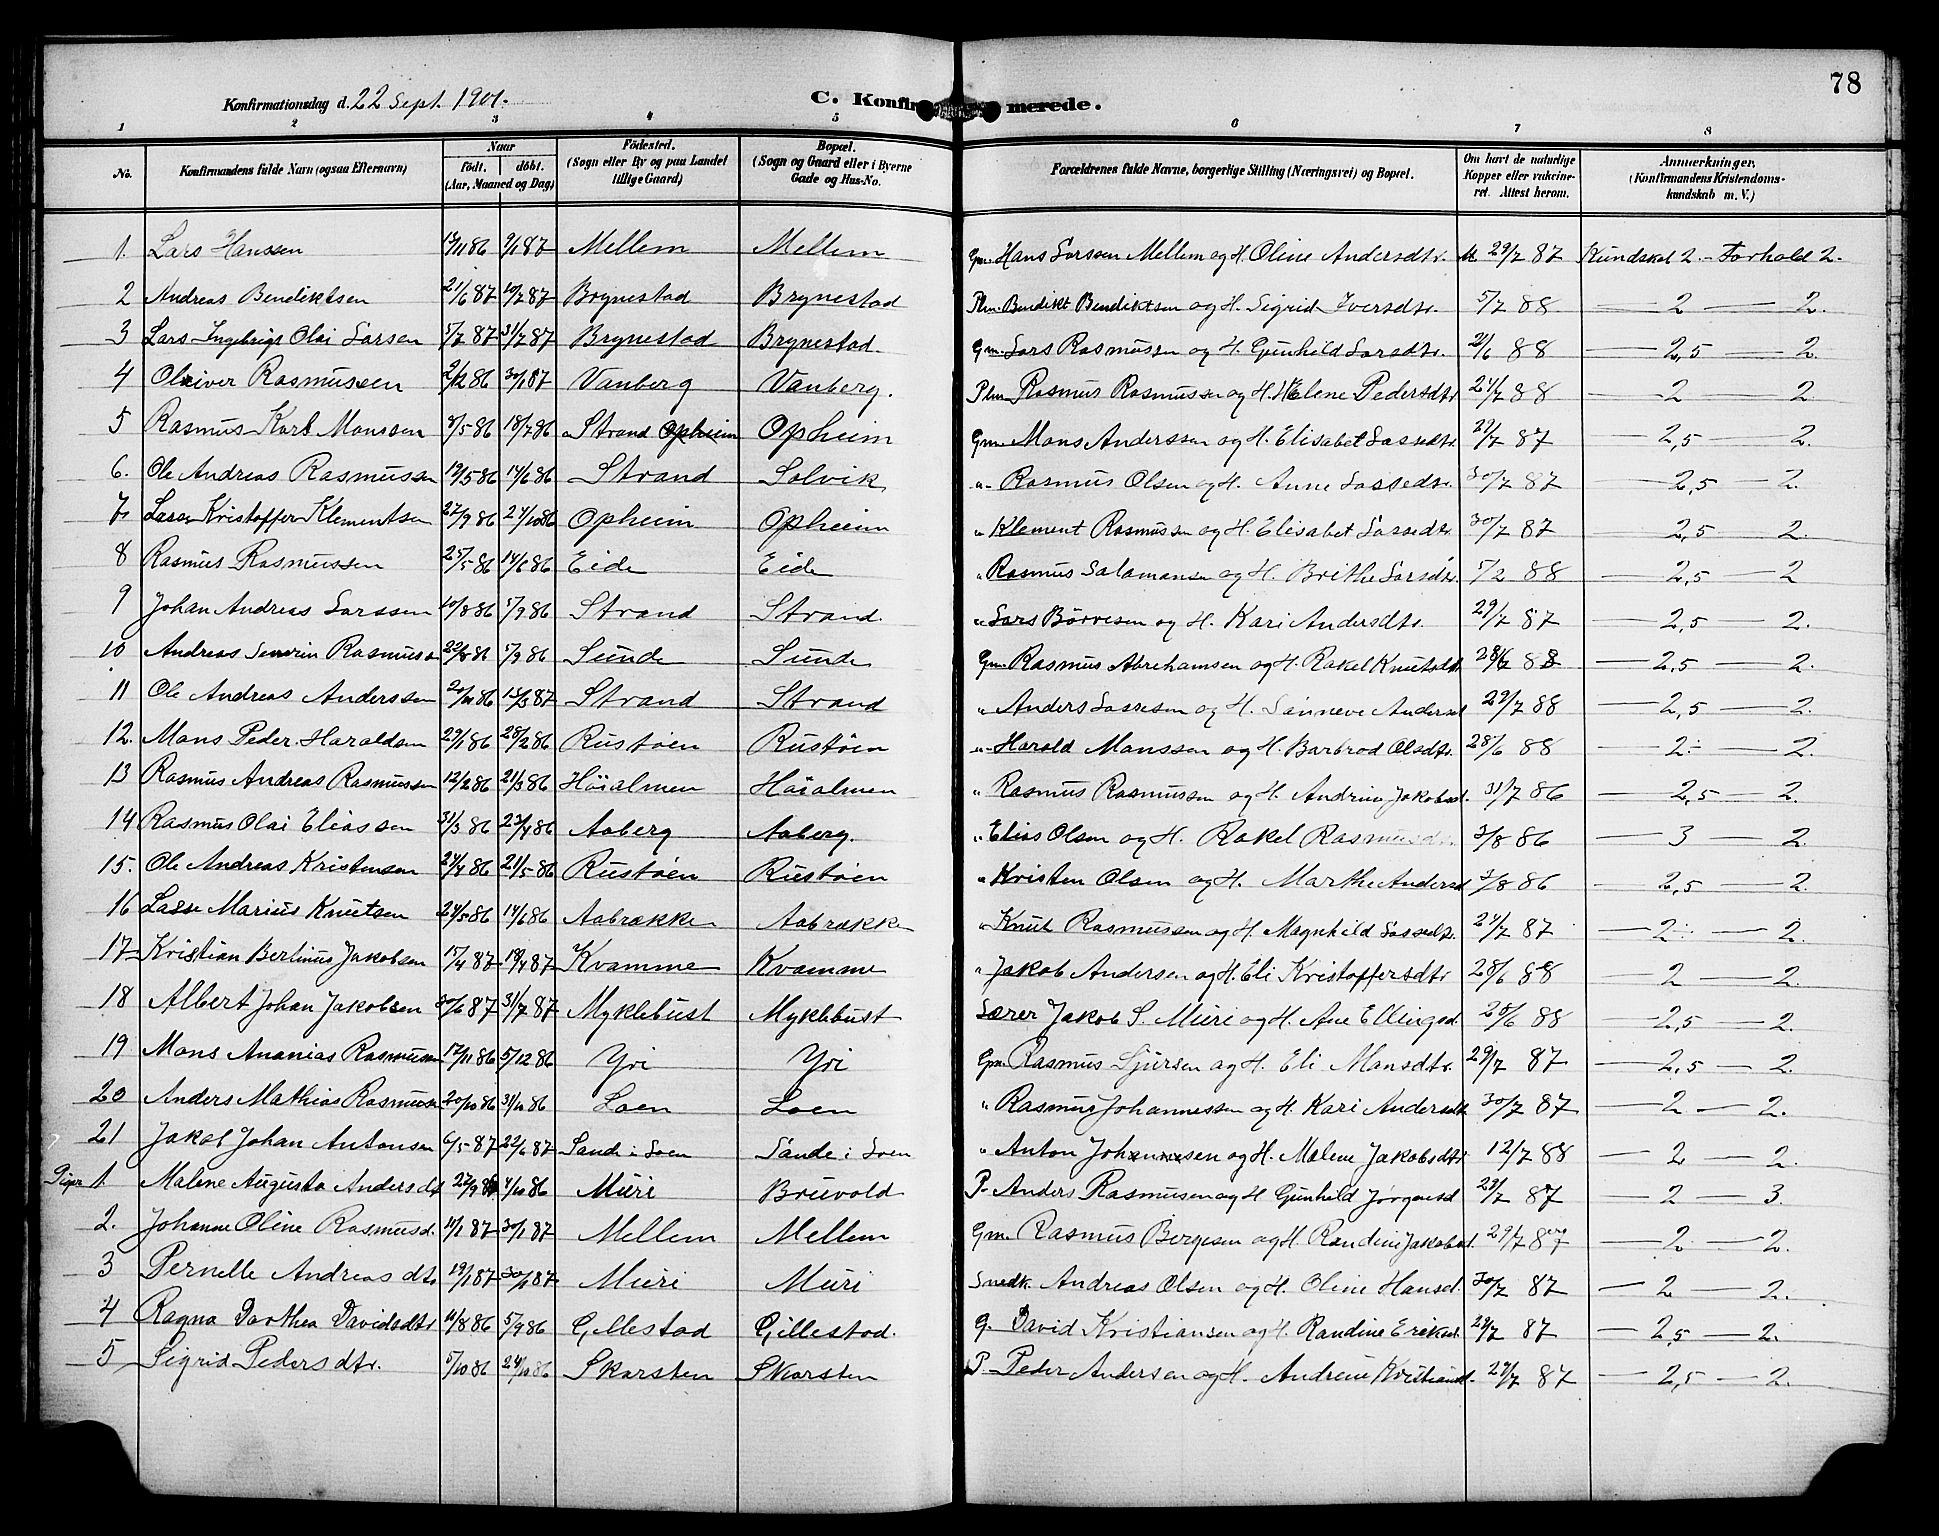 78
Konfirmationsdag d. 22 Sept. 1901. C. Konfirmerede.
1 2 3 4 5 6 7 8
No. Konfirmandens fulde Navn (ogsaa Efternavn) Naar født. døbt. (Aar, Maaned og Dag) Fødested. (Sogn eller By og paa Landet tillige Gaard) Bopæl. (Sogn og Gaard eller i Byerne Gade og Hus-No. Forældrenes fulde Navne, borgerlige Stilling (Næringsvei) og Bopæl. Om havt de naturlige Kopper eller vakcineret. Attest herom. Anmærkninger, (Konfirmandens Kristendomskundskab m. V.)
1. Lars Hanssen 86 9/1 87 Mellem Mellem Gm. Hans Larssen Mellem og H. Oline Andersdtr. 29/7 87 Kundskab 2. - Forhold 2.
2 Andreas Bendiktsen 21/6 87 10/7 87 Brynestad Brynestad Plm. Bendikt Bendiktsen og H. Sigrid Iversdtr. 5/7 88 — 2 — 2.
3 Lars Ingebrigt Olai Larsen 5/7 87 31/7 87 Brynestad Brynestad. Gm. Lars Rasmussen og H. Gunhild Larsdtr. 21/6 88 — 2,5 — 2.
4 Oliver Rasmussen 2/12 86 30/1 87 Vanberg Vanberg. Plm. Rasmus Rasmussen og H. Helene Pedersdtr 88 — 2 2.
5 Rasmus Karl Monssen 8/5 86 18/7 86 Strand Opheim Opheim Gm. Mons Anderssen og H. Elisabet Lassedtr. 87 — 2,5 — 2.
6. Ole Andreas Rasmussen 19/5 86 14/6 86 Strand Solvik " Rasmus Olsen og H. Anne Lassedtr. 30/7 87 — 2,5 — 2.
7. Lasse Kristoffer Klementsen 27/9 86 24/10 86 Opheim Opheim " Klement Rasmussen og H. Elisabet Lassedtr. 30/7 87 — 2,5 — 2.
8 Rasmus Rasmussen 25/5 86 14/6 86 Eide Eide " Rasmus Salamonsen og H. Brithe Larsdtr. 5/2 88 — 2,5 — 2
9 Johan Andreas Larssen 10/8 86 5/9 86 Strand Strand. " Lars Børresen og H. Kari Andersdtr. 29/7 87 — 2,5 — 2.
10 Andreas Severin Rasmussen 22/8 86 5/9 86 Sunde Sunde Gm. Rasmus Abrehamsen og H. Rakel Knutsdtr 28/6 88 — 2,5 — 2.
11 Ole Andreas Anderssen 86 87 Strand Strand " Anders Lassesen og H. Sanneve Andersd 88 — 2,5 — 2.
12. Mons Peder Haraldsen 29/1 86 28/2 86 Rustøen Rustøen " Harald Monssen og H. Barbrod Olsdtr. 28/6 88 — 2 — 2.
13 Rasmus Andreas Rasmussen 12/2 86 21/3 86 Høialmen Høialmen " Rasmus Rasmussen og H. Andrine Jakobsd. 31/7 86 — 2,5 — 2.
14 Rasmus Olai Eliassen 31/3 86 86 Aaberg Aaberg. " Elias Olsen og H. Rakel Rasmusd. 3/8 86 — 3 — 2.
15. Ole Andreas Kristensen 24/4 86 21/5 86 Rustøen Rustøen " Kristen Olsen og H. Marthe Andersd 3/8 86 — 2,5 — 2.
16 Lasse Marius Knutsen 24/5 86 14/6 86 Aabrække Aabrække " Knut Rasmussen og H. Magnhild Lassedtr. 24/7 87 — 2 — 2.
17 Kristian Bertinus Jakobsen 15/4 87 19/4 87 Kvamme Kvamme " Jakob Andersen og H. Eli Kristoffersdtr 28/6 88 — 2 — 2.
18 Albert Johan Jakobsen 20/6 87 31/7 87 Myklebust Myklebust Lærer Jakob S. Muri og H. Ane Ellingsd. 28/6 88 — 2,5 — 2.
19 Mons Ananias Rasmussen 17/11 86 5/12 86 Yri Yri Gm. Rasmus Sjursen og H. Eli Monsdtr. 29/7 87 — 2,5 — 2.
20 Anders Mathias Rasmussen 20/10 86 31/10 86 Loen Loen " Rasmus Johannessen og H. Kari Andersdtr 30/7 87 — 2 — 2.
21 Jakob Johan Antonsen 6/5 87 22/6 87 Sande i Loen Sande i Loen " Anton Johannesen og H. Malene Jakobsdtr 12/7 88 — 2 — 2.
Piger 1. Malene Augusta Andersdt 27/9 86 4/10 86 Muri Bruvold P. Anders Rasmusen og H Gunhild Jørgensd 87 — 2 — 3.
2. Johanne Oline Rasmusd. 4/1 87 30/1 87 Mellem Mellem Gm. Rasmus Bergesen og H. Randine Jakobsd. 29/7 87 — 2 — 2.
3 Pernelle Andreasdtr 19/1 87 30/1 87 Muri Muri Snedk. Andreas Olsen og H. Oline Hansd. 30/7 87 — 2 — 2.
4 Ragna Dorthea Davidsdtr 86 5/9 86 Gillestad Gillestad. G. David Kristiansen og H. Randine Eriksd. 87 — 2,5 — 2.
5 Sigrid Pedersdtr. 5/10 86 24/10 86 Skarsten Skarsten P. Peder Andersen og H. Andrine Kristiansd. 29/7 87 — 2,5 — 2.